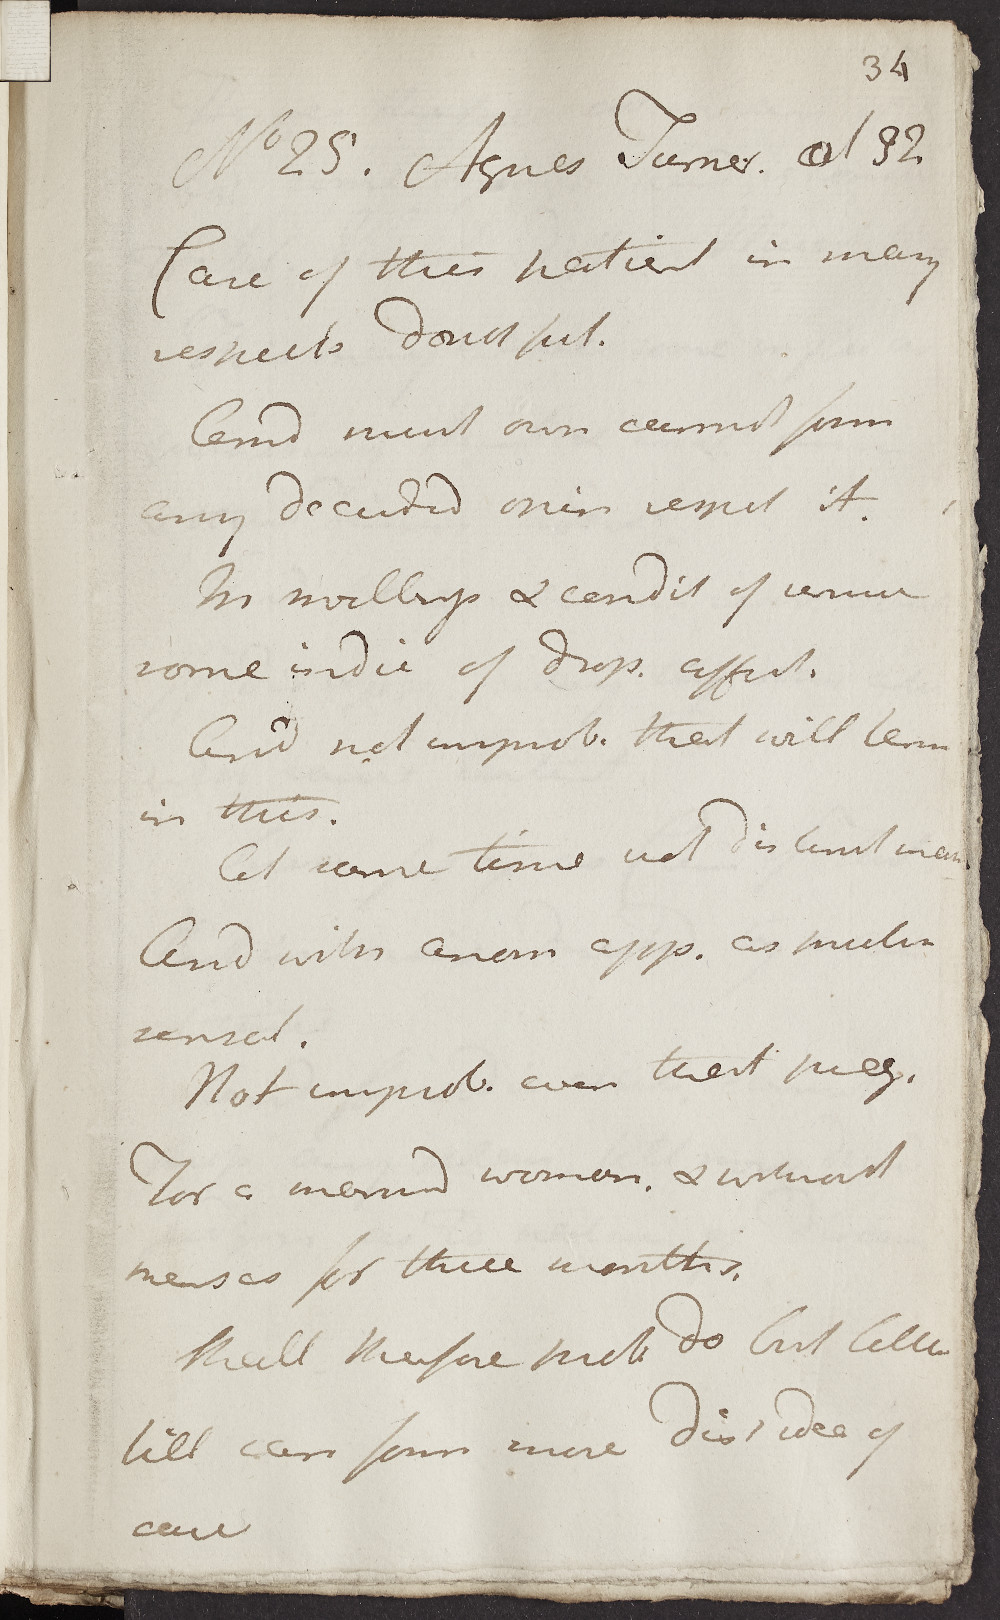 34
No 25. Agnes Turner. aet 32
Case of this patient in many
respects doubtful.
And must own cannot form
any decided opin respect it.
In swellings & condit of urine
some indic of drop. affect.
And not improb. that will term
in this.
At same time not distinct mark
And with anom app. as pulsn
sensat.
Not improb. even that preg.
For a married woman. & without
menses for three months.
Shall therefore prob do but little
till can form more dist idea of
case